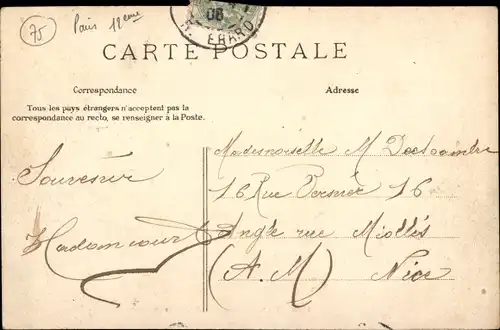 75
Paris 12eme
08
ERARD
CARTE POSTALE
Correspondance
Adresse
Tous les pays étrangers n'acceptent pas la
correspondance au recto, se renseigner à la Poste.
Mademoiselle M
16 Rue Vernier 16
Souvenir
Angle rue Miollis
(A. M) Nice